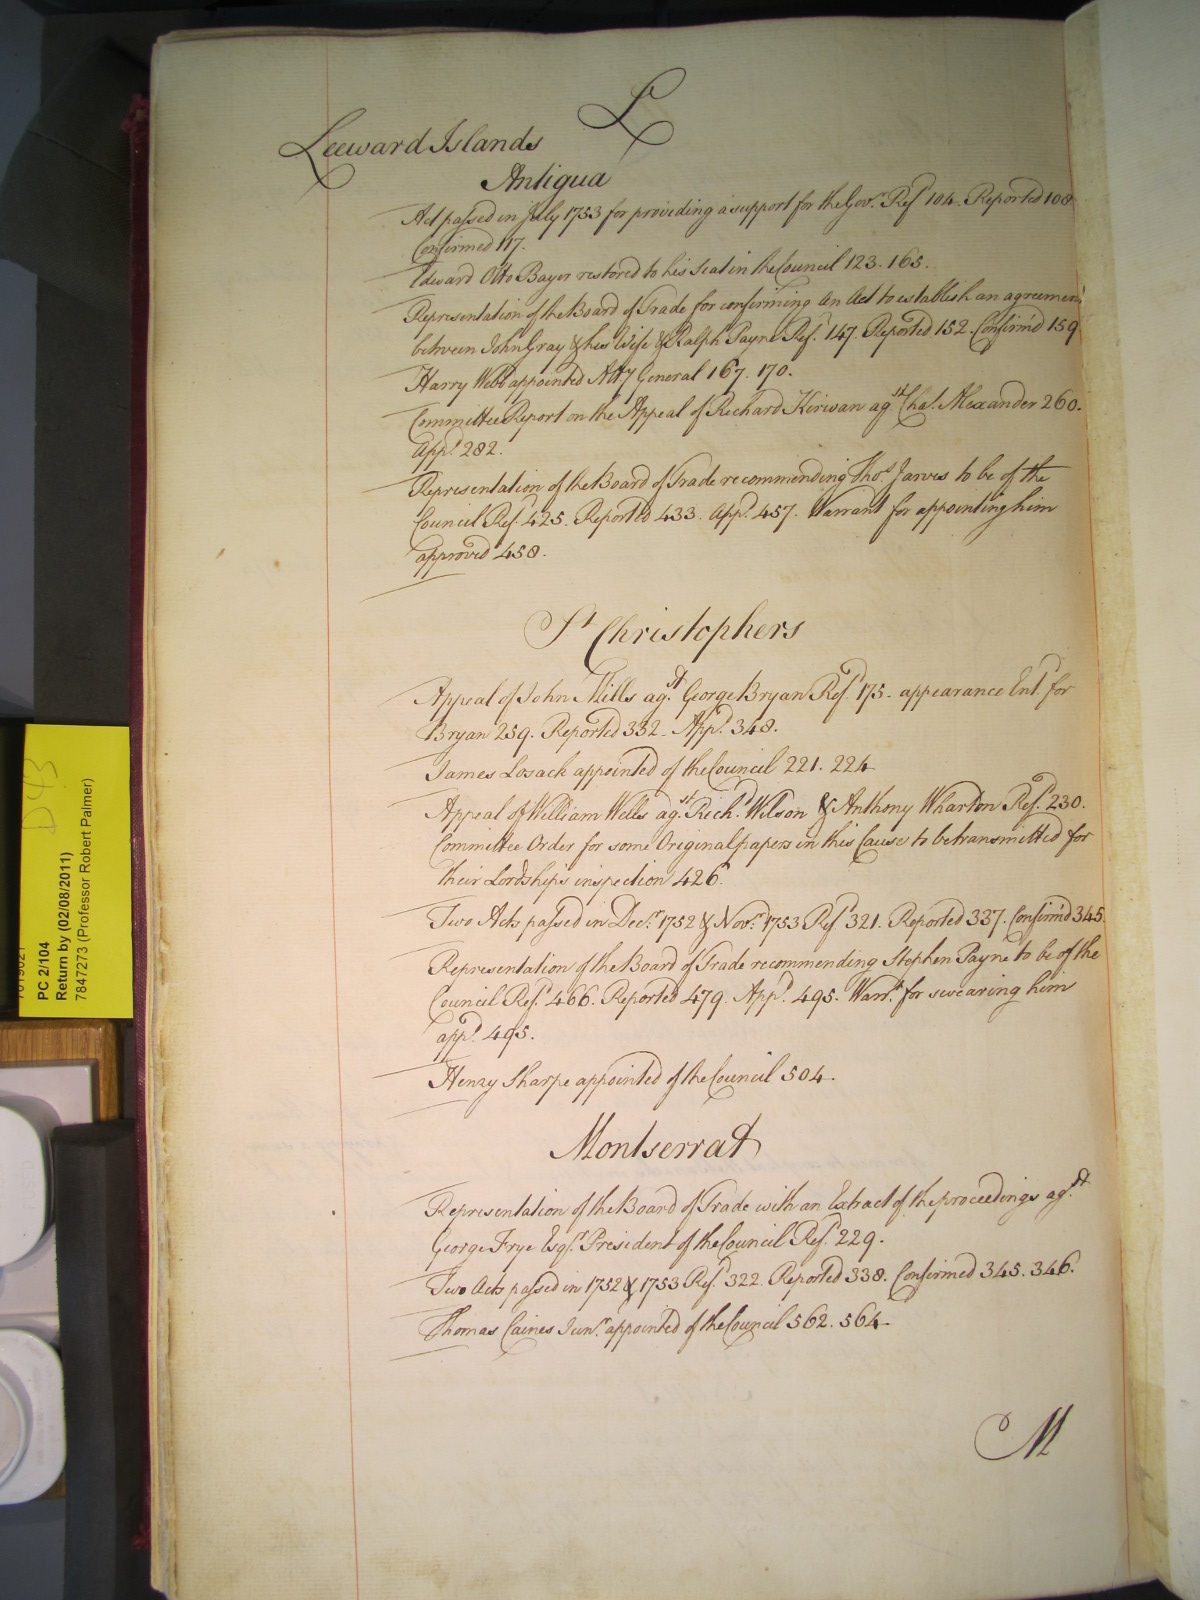 L
Leeward Islands
Antigua
Act passed in July 1753 for providing a support for the Govr. Refd 104. Reported 108
Confirmed 117.
Edward Otto Bayer restored to his Seat in the Council 123. 165.
Representation of the Board of Trade for confirming an Act to establish an agreement
between John Gray & his Wife & Ralph Payne Refd. 147. Reported 152. Confirm'd 159
Harry Webb appointed Atty General 167. 170.
Committee Report on the Appeal of Richard Kirwan agst. Chas. Alexander 260.
Appd. 282.
Representation of the Board of Trade recommending Thos. Jarvis to be of the
Council Refd. 425. Reported 433. Appd. 457. Warrant for appointing him
approved 458.
St Christophers
Appeal of John Mills agst. George Bryan Refd. 175. appearance Entd. for
Bryan 259. Reported 332. Appd. 348.
James Losack appointed of the Council 221. 224
Appeal of William Wells agst. Richd. Wilson & Anthony Wharton Refd. 230.
Committee Order for some Original papers in this Cause to be transmitted for
their Lordships inspection 426.
Two Acts passed in Decr. 1752 & Novr. 1753 Refd 321. Reported 337. Confirm'd 345.
Representation of the Board of Trade recommending Stephen Payne to be of the
Council Refd. 466. Reported 479. Appd. 495. Warrt. for swearing him
appd. 495.
Henry Sharpe appointed of the Council 504.
Montserrat
Representation of the Board of Trade with an Extract of the proceedings agst.
George Frye Esqr. President of the Council Refd. 229.
Two Acts passed in 1752 & 1753 Refd. 322. Reported 338. Confirmed 345. 346.
Thomas Caines Junr. appointed of the Council 562. 564.
M
D43
PC 2/104
Return by (02/08/2011)
7847273 (Professor Robert Palmer)